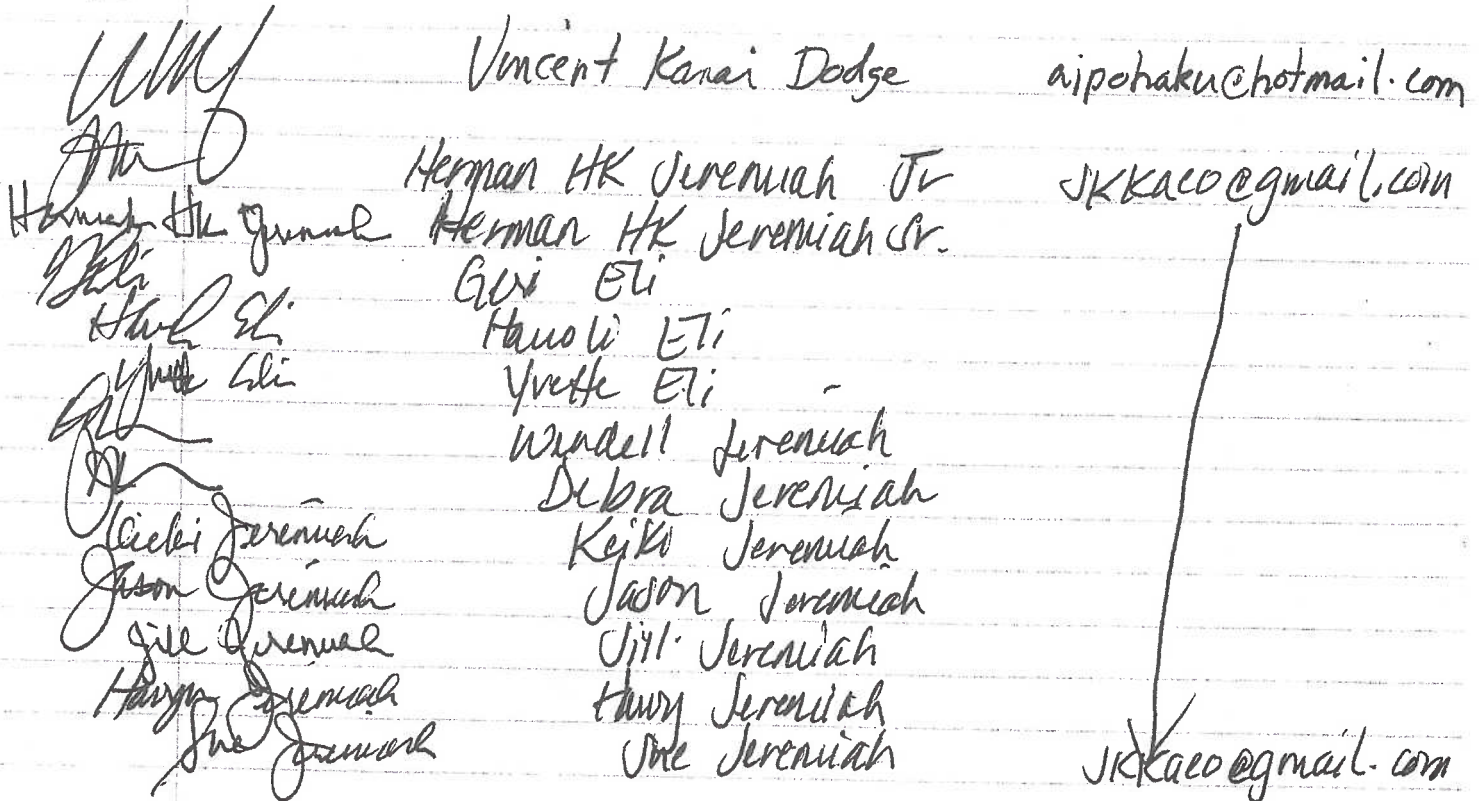 Vincent Kanai Dodge aipohaku@hotmail.com
Herman HK Jeremiah Jr JKKaeo@gmail.com
Herman HK Jeremiah Sr.
Geri Eli
Eli Hauoli Eli
Yvette Eli Yvette Eli
Wendell Jeremiah
Debra Jeremiah
Keiki Jeremiah Keiki Jeremiah
Jason Jeremiah Jason Jeremiah
Jill Jeremiah Jill Jeremiah
Jeremiah Jeremiah
Jeremiah Jeremiah JKKaeo@gmail.com